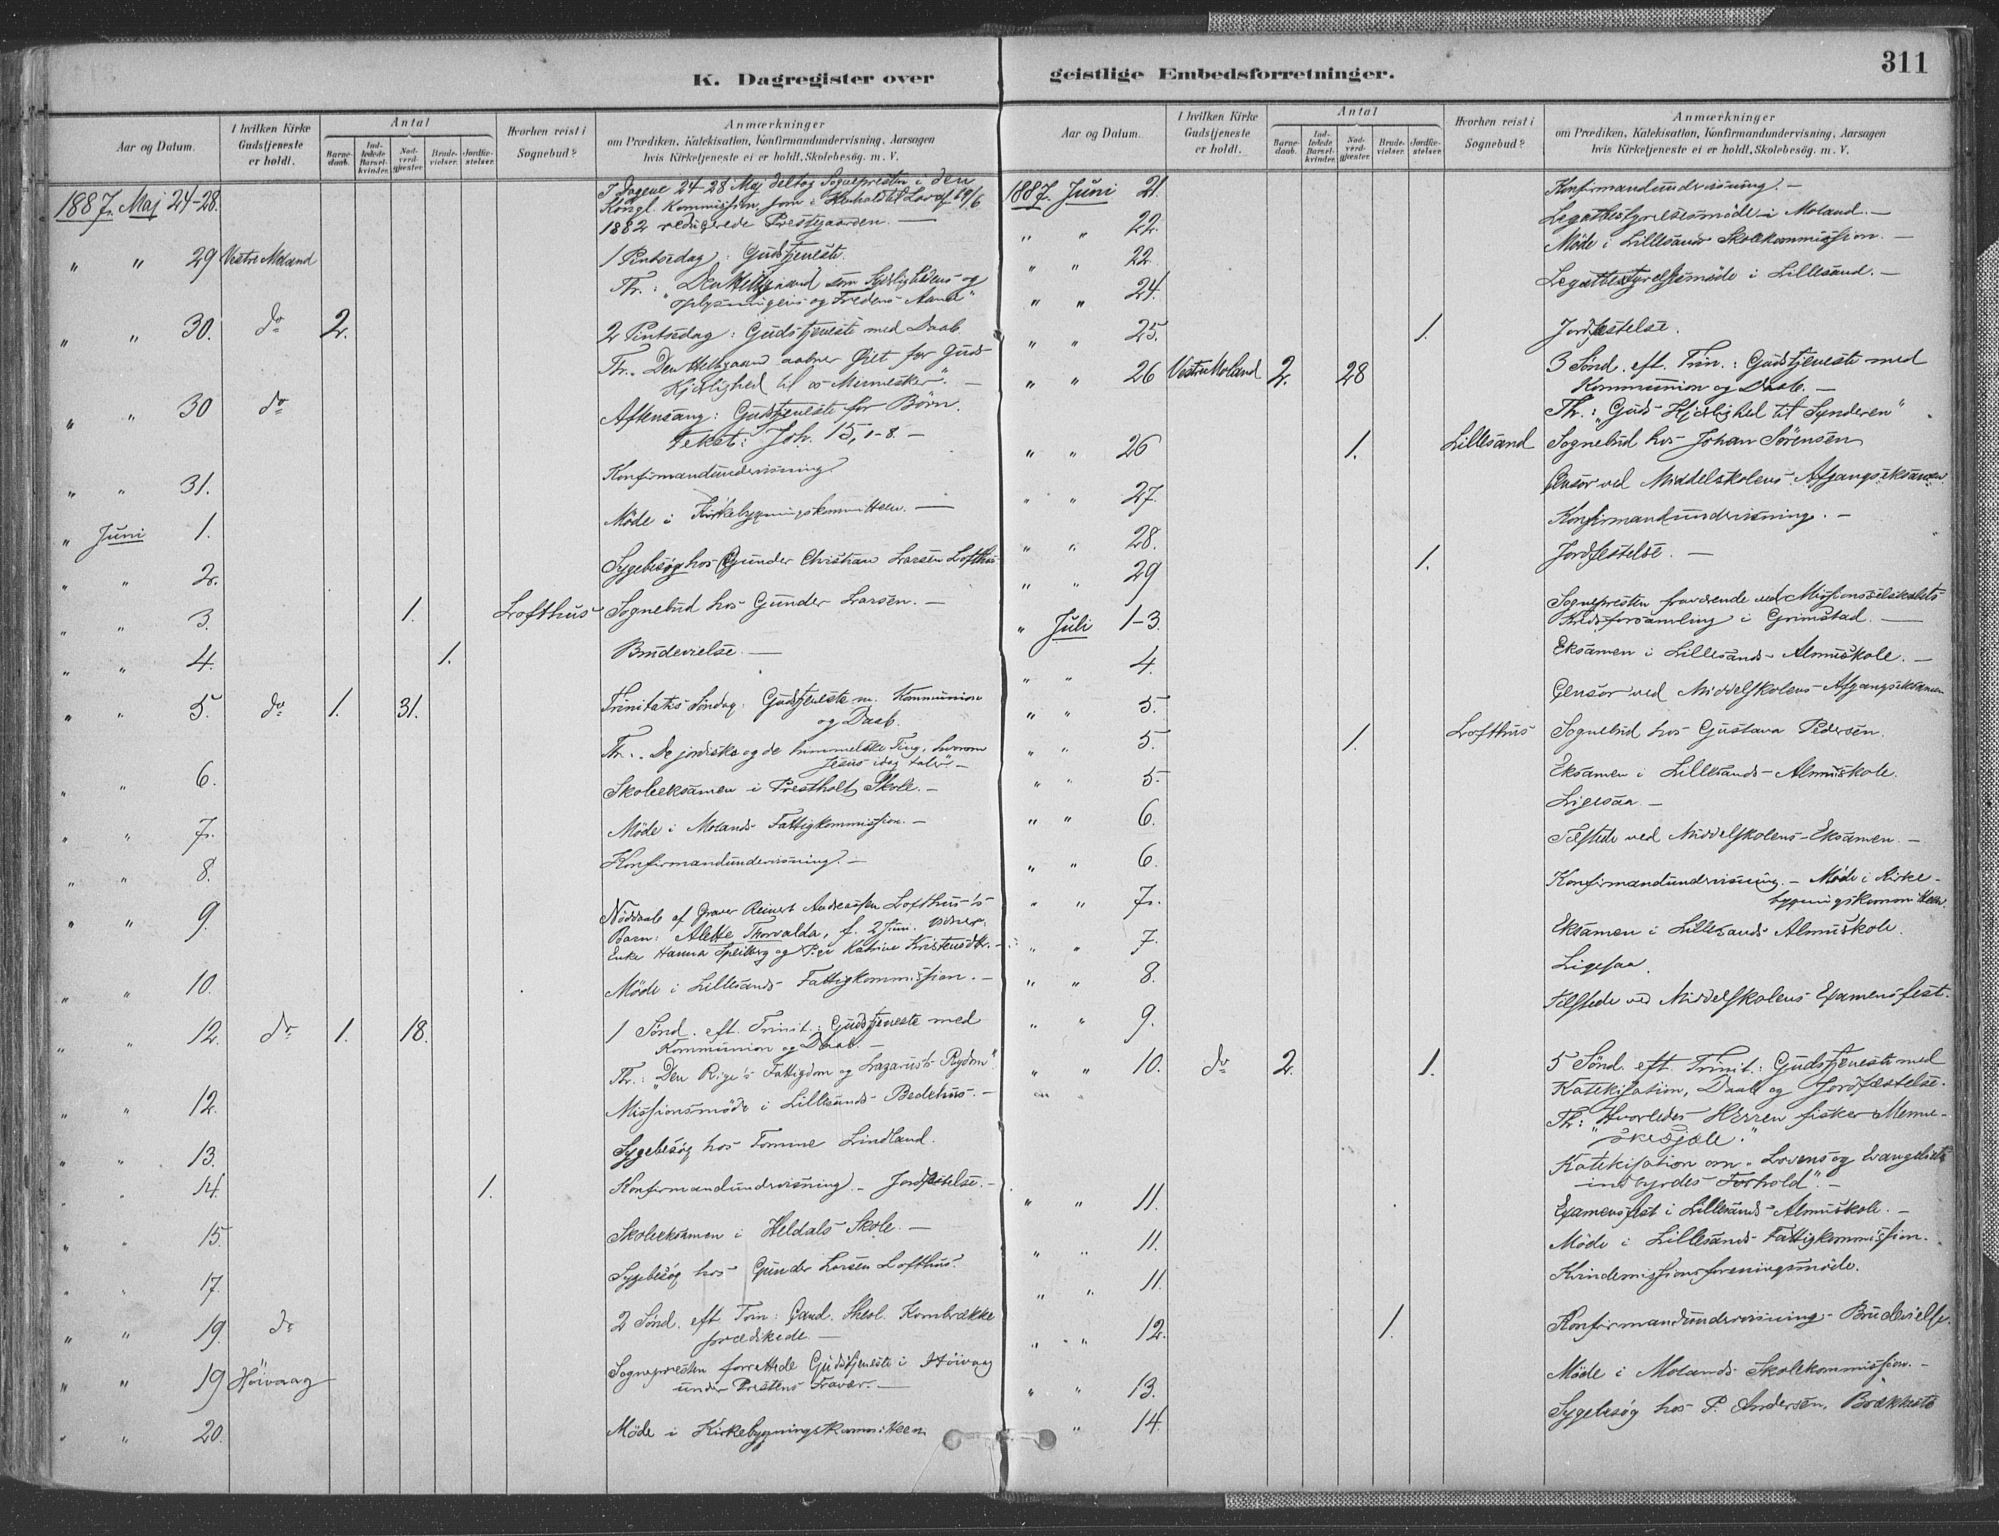 K. Dagregister over
Aar og Datum.
I hvilken Kirke Gudstjeneste er holdt.
Antal
Barnedaab.
Indledede Barselkvinder.
Nadverdgjester.
Brudevielser.
Jordfæstelser.
Hvorhen reist i Sognebud?
Anmærkninger
om Prædiken, Katekisation, Konfirmandundervisning, Aarsagen
hvis Kirketjeneste ei er holdt, Skolebesög. m. V.
1887. Maj 24-28. I Dagene 24-28 Maj deltog Sognepresten i den
Kongl. Kommission, som i Henhold til Lov af 19/6
1882 regulerede Prestegaarden. —
" " 29 Vestre Moland 1 Pintsedag: Gudstjeneste.
Th.: "Den Helligaand som Sydlighedens og
Oplysningens og Fredens Aand"
" " 30. do 2. 2 Pintsedag: Gudstjeneste med Daab.
Th. "Den Helligaand aabner Øiet for Guds
Kjærlighed til os Mennesker". —
" " 30 do Aftensang: Gudstjeneste for Børn.
Tekst: Joh. 15, 1-8. —
" " 31. Konfirmandundervisning
" Juni 1. Møde i Kirkebygningskommitteen. —
" " 2. Sygebesøg hos Gunder Christian Larsen Lofthus
" " 3. 1. Lofthus Sognebud hos Gunder Larsen. —
" " 4. 1. Brudevielse. —
" " 5. do 1. 31. Trinitatis Søndag: Gudstjeneste m. Kommunion
og Daab.
Th. "De jordiske og de himmelske Ting, hvorom
Jesus idag taler" —
" " 6. Skoleeksamen i Prestholt Skole. —
" " 7. Møde i Molands Fattigkommission. —
" " 8. Konfirmandundervisning. —
" " 9. Nøddaab af Graver Reinert Andreassen Lofthus's
Barn: Alette Thorvalda, f. 2 Juni. Vidner:
Enke Hanna Speilberg og Pige Katrine Kristensdtr. —
" " 10. Møde i Lillesands Fattigkommission. —
" " 12. do 1. 18. 1 Sønd. eft. Trinit.: Gudstjeneste med
Kommunion og Daab. —
Th.: "Den Riges Fattigdom og Lazarus's Rigdom".
" " 12. Missionsmøde i Lillesands Bedehus. —
" " 13. Sygebesøg hos Tomine Lindland.
" 14. 1. Konfirmandundervisning. — Jordfæstelse. —
" " 15. Skoleeksamen i Heldals Skole. —
" " 17. Sygebesøg hos Gunder Larsen Lofthus.
" " 19. do 2 Sønd. eft. Trin: Cand. Theol. Kornbrække
prædikede —
" " 19 Høivaag Sognepresten forrettede Gudstjeneste i Høivaag
under Prestens Fravær. —
" " 20. Møde i Kirkebygningskommitteen
geistlige Embedsforretninger.
311
Aar og Datum.
I hvilken Kirke Gudstjeneste er holdt.
Antal
Barnedaab.
Indledede Barselkvinder.
Nadverdgjester.
Brudevielser.
Jordfæstelser.
Hvorhen reist i Sognebud?
Anmærkninger
om Prædiken, Katekisation, Konfirmandundervisning, Aarsagen
hvis Kirketjeneste ei er holdt, Skolebesög. m. V.
1887. Juni 21. Konfirmandundervisning. —
" " 22. Legatbestyrelsesmøde i Moland. —
" " 22. Møde i Lillesands Skolekommission. —
" " 24. Legatbestyrelsesmøde i Lillesand. —
" " 25. 1. Jordfæstelse.
" " 26 Vestre Moland 2. 28 3 Sønd. eft. Trin.: Gudstjeneste med
Kommunion og Daab. —
Th.: "Guds Kjærlighed til Synderen"
" " 26 1. Lillesand Sognebud hos Johan Sørensen
" " 27. Censor ved Middelskolens Afgangseksamen
" " 28. Konfirmandundervisning. —
" " 29 1. Jordfæstelse. —
" Juli 1-3. Sognepresten fraværende ved Missionsselskabets
Kredsforsamling i Grimstad. —
" " 4. Eksamen i Lillesands Almuskole. —
" " 5. Censor ved Middelskolens Afgangseksamen
" " 5. 1. Lofthus Sognebud hos Gustava Pedersen.
" " 5. Eksamen i Lillesands Almuskole.
" " 6. Ligesaa —
" " 6. Tilstede ved Middelskolens Eksamen. —
" " 7. Konfirmandundervisning. — Møde i Kirke-
bygningskommitteen
" 7. Eksamen i Lillesands Almuskole.
" " 8. Ligesaa.
" " 9. Tilstede ved Middelskolens Examensfest.
" " 10. do 2. 1. 5 Sønd. eft. Trinit.: Gudstjeneste med
Katekisation, Daab og Jordfæstelse.
Th: "Hvorledes HErren fisker Menne-
skesjæle."
Katekisation om "Lovens og Evangeliets
indbyrdes Forhold". —
" " 11. Examensfest i Lillesands Almuskole. —
" " 11. Møde i Lillesands Fattigkommission.
" " 11. Kvindemissionsforeningsmøde.
" " 12. 1. Konfirmandundervisning. Brudevielse.
" " 13. Møde i Molands Skolekommission. —
" 14. Sygebesøg hos P. Andersen, Brækkestø